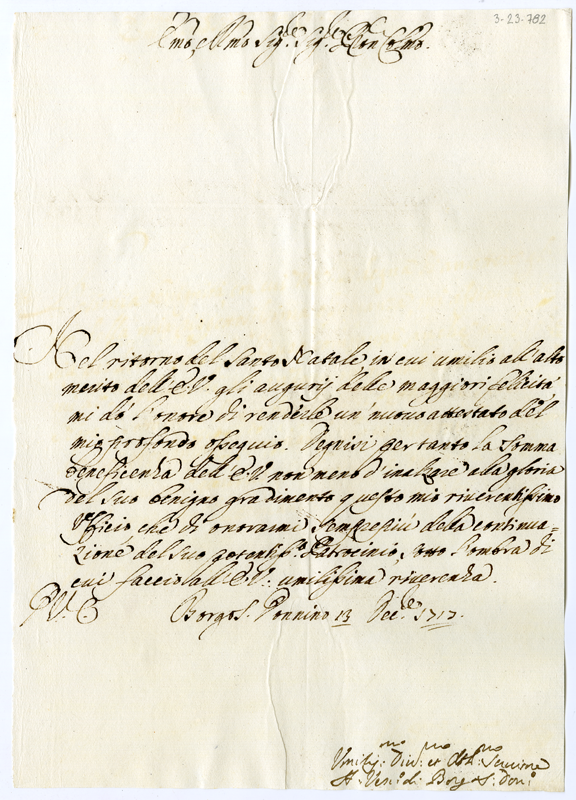 3-23-782
Emo, e Rmo Sig.re Sig.re Pron Colmo.
Nel ritorno del Santo Natale, in cui umilio all'alto
merito dell'E.V. gli augurij delle maggiori felicità
mi dò l'onore di renderle un nuovo attestato del
mio profondo ossequio. Degnisi pertanto la somma
beneficenza dell'E.V. non meno d'inalzare alla gloria
del suo benigno gradimento questo mio riverentissimo
Vfficio che di onorarmi semprepiù della continua=
zione del suo potentiss.o Patrocinio, sotto l'ombra di
cui faccio all'E.V. umilissima riverenza.
Borgo S. Donnino 13 Dec.re 1717.
Umiliss.mo Div.mo et Obl.mo Servitore
A. Ves.o di Borgo S: Don.o